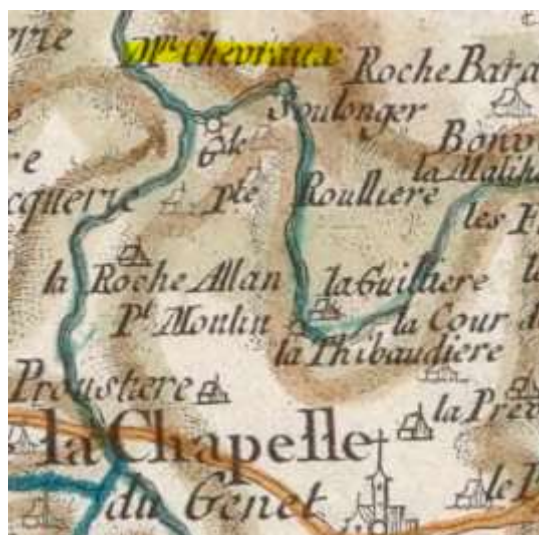 Mⁱⁿ Chevraux
Roche Bara
Soulonger
Gde
Bonv
la Malih
Pte Roulliere
cquerie
les F
la Roche Allan
la Guilliere
Pt Moulin
la Cour d
la Thibaudiere
Proustiere
la Prev
la Chapelle
du Genet